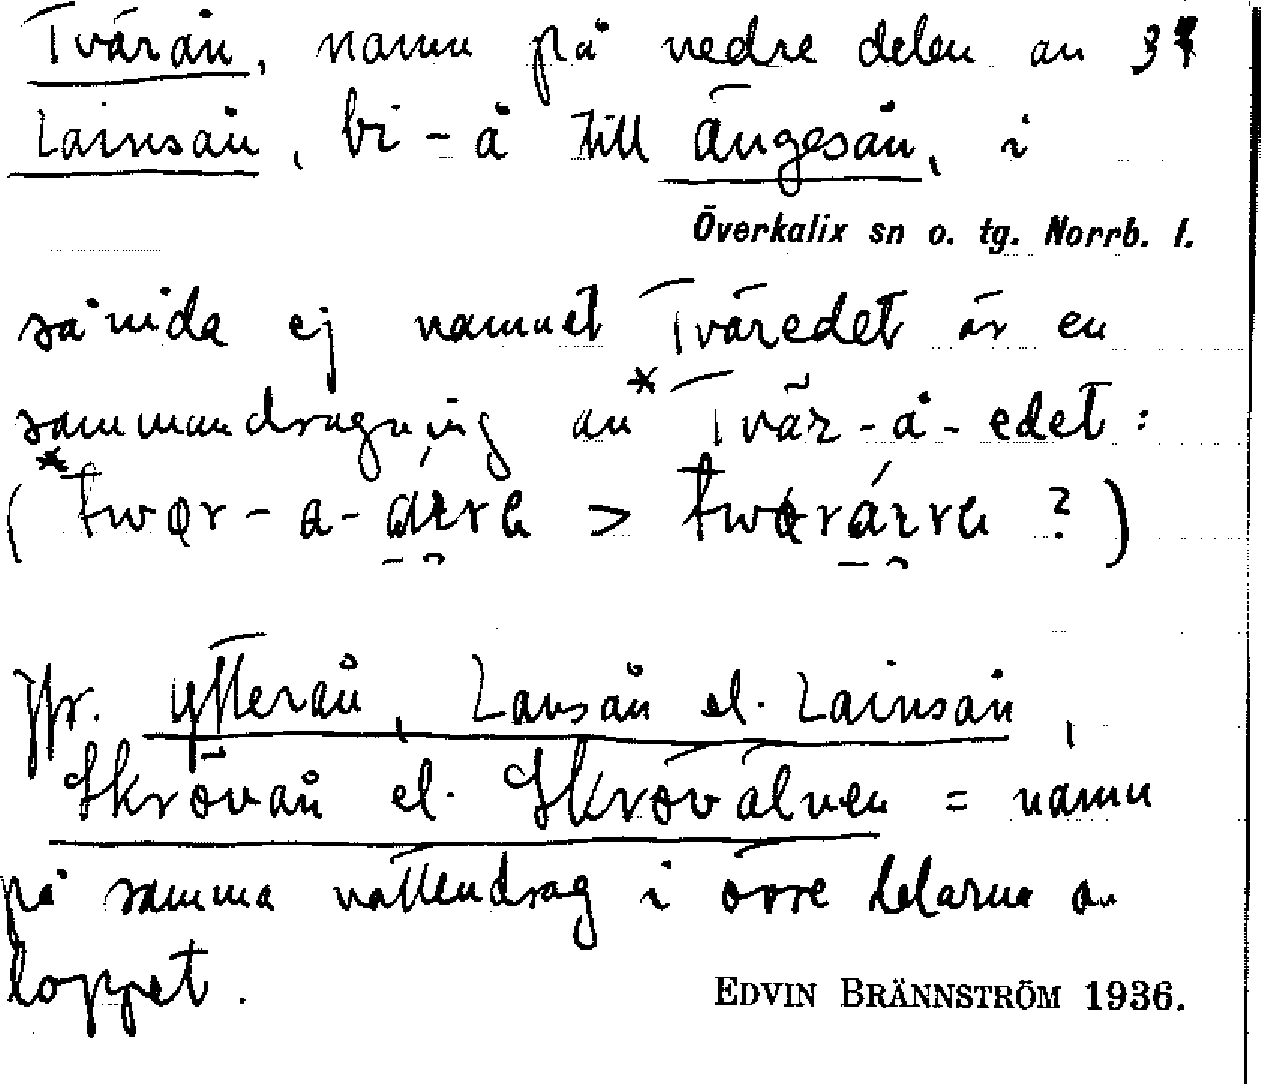 Tvärån, namn på nedre delen av
Lainsån, bi-å till Ängesån, i
Överkalix sn o. tg. Norrb. l.
såvida ej namnet Tväredet är en
sammandragning av *Tvär-å-edet:
Jfr. Ytterån, Lansån el. Lainsån,
Skrövån el. Skrövälven = namn
på samma vattendrag i övre delarna av
loppet.
EDVIN BRÄNNSTRÖM 1936.